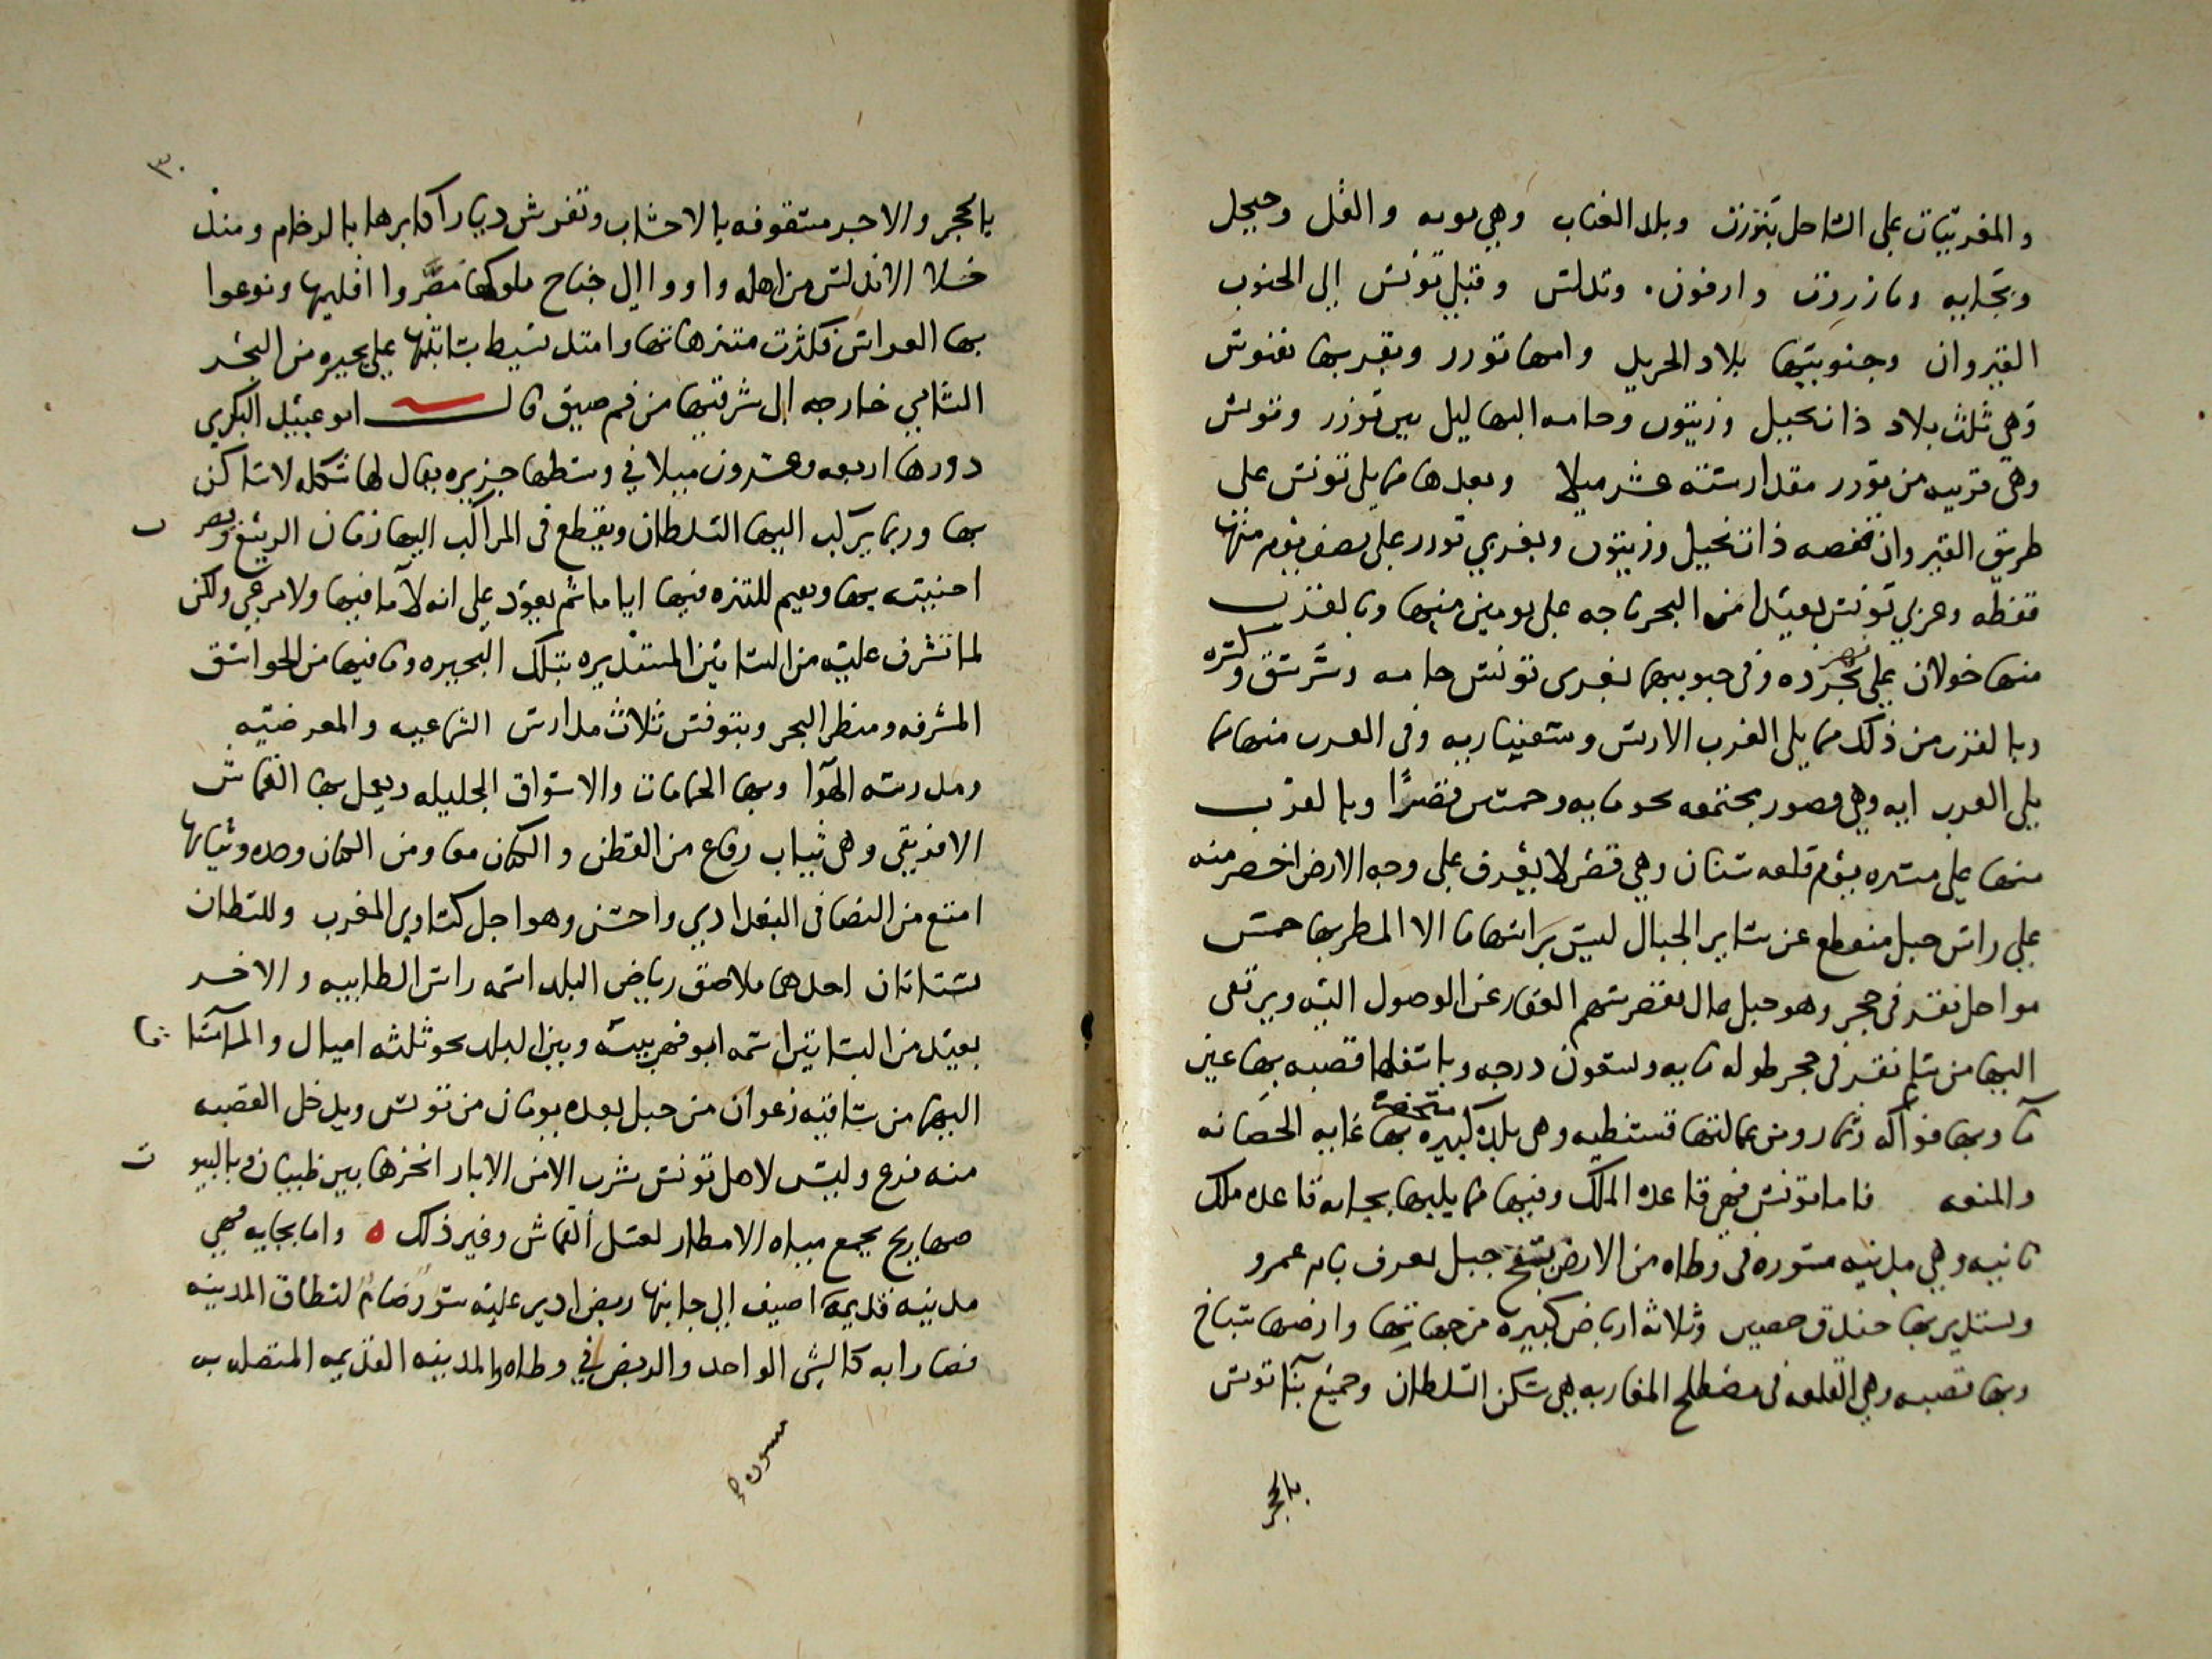 والمغربيات على الساحل بنزرت وبلد العناب وهي بونه والقل وجيجل
وبجايه وتازروت وارفون. وتدلس وقبلي تونس الى الجنوب
القيروان وجنوبيها بلاد الجريد وامها توزر وبقربها نفوس
وهي ثلث بلاد ذا نخيل وزيتون وحامه البهاليل بين توزر وتونس
وهي قريبه من توزر مقدار ستة عشر ميلا وبعدها مما يلي تونس على
طريق القيروان قفصه ذات نخيل وزيتون وبغربي توزر على نصف يوم منها
نفطه وغربي تونس بعيدا من البحر باجه على يومين منها وبالقرب
منها خولان على نهر مجرده وفي جنوبيها بغربي تونس حامه
وبالقرب من ذلك مما يلي الغرب الاربس وشقبناريه وفي الغرب منها مما
يلي الغرب ابه وهي قصور مجتمعه نحو مايه وخمس قصرًا وبالقرب
منها على مسيره يوم قلعه سنان وهي قصر لا يعرف على وجه الارض احصن منه
على راس جبل منقطع عن ساير الجبال ليس براسها ما الا المطر بها خمس
مواجل نقر في حجر وهو جبل عال يقصر سهم العقار عن الوصول اليه ويرتقى
اليها من سلم نقر في حجر طوله مايه وتسعون درجه وباسفلها قصبه بها عين
ما وبها فواكه وثمار ومن عمالتها قسنطينه وهي بلده كبيره متحضره بها غايه الحصانه
والمنعه فاما تونس فهي قاعده الملك وفيها مما يليها بجايه قاعده ملك
ثانيه وهي مدينه مسوره في وطاه من الارض بسفح جبل يعرف بام عمرو
ويستدير بها خندق حصين وثلاثة ارباض كبيره من جهاتها وارضها سباخ
وبها قصبه وهي القلعه في مصطلح المغاربه هي سكن السلطان وجميع بنا تونس
بالحجر
٣٠
بالحجر والاجر مسقوفه بالاخشاب وتفرش ديار اكابرها بالرخام ومنذ
خلا الاندلس من اهله واووا الى جناح ملوكها مصروا اقليمها ونوعوا
بها الغراس فكثرت متنزهاتها وامتد بسيط بساتينها على بحيره من البحر
الشامي خارجه الى شرقيها من فم ضيق قال ابو عبيد البكري
دورها اربعه وعشرون ميلا في وسطها جزيره يقال لها شكله لا ساكن
بها وربما يركب اليها السلطان ويقطع في المراكب اليها زمان الربيع
اخبيته بها ويقيم للتنزه فيها اياما ثم يعود على انه لا ما فيها ولا مرعى ولكن
لما تشرف عليه من البساتين المستديره بتلك البحيره وما فيها من الجواسق
المشرفه ومنظر البحر وبتونس ثلاث مدارس الشماعيه والمعرضيه
ومدرسه الهوا وبها الحمامات والاسواق الجليله ويعمل بها القماش
الافريقي وهي ثياب رفاع من القطن والكتان معا ومن الكتان وحده وثيابها
امتع من النصافي البغدادي واحسن وهو اجل كساوي المغرب وللسلطان
بستانان احدهما ملاصق رباض البلد اسمه راس الطابيه والاخر
بعيد من البساتين اسمه ابو فهر بينه وبين البلد نحو ثلثه اميال والما
اليها من ساقيه زغوان من جبل بعده يومان من تونس ويدخل القصبه
منه فرع وليس لاهل تونس شرب الا من الابار اغزرها بير ظبيان وبالبيوت
صهاريج يجمع مياه الامطار لغسل القماش وغير ذلك ه واما بجايه فهي
مدينه قديمة اضيف الى جانبها ربض ادير عليه سور ضام لنطاق المدينه
فصارا به كالشي الواحد والربض في وطاه والمدينه القديمه المتصله به